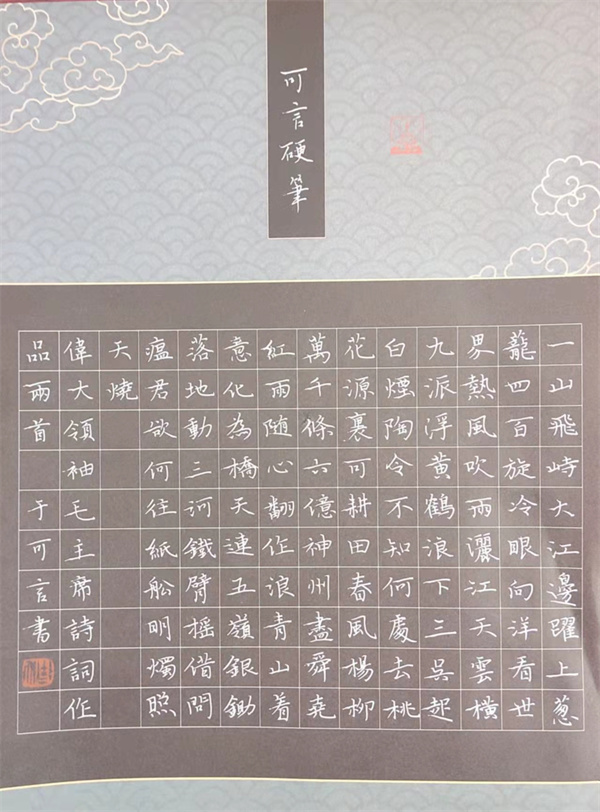 可言硬筆
一山飛峙大江邊躍上葱
龍四百旋冷眼向洋看世
界熱風吹雨灑江天雲橫
九派浮黃鶴浪下三吳起
白煙陶令不知何處去桃
花源裏可耕田春風楊柳
萬千條六億神州盡舜堯
紅雨随心翻作浪青山着
意化為橋天連五嶺銀鋤
落地動三河鐵臂摇借問
瘟君欲何往紙舩明燭照
天燒
偉大領袖毛主席詩詞作
品兩首 于可言書